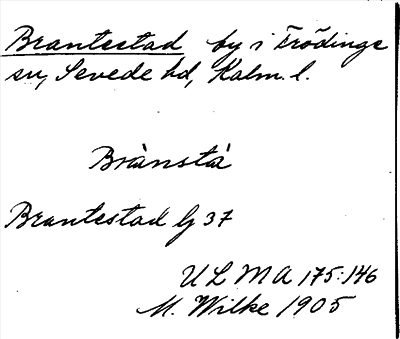 Brantestad by i Frödinge
sn, Sevede hd, Kalm. l.
Brànstà
Brantestad lj 37
ULMA 175:146
M. Wilke 1905